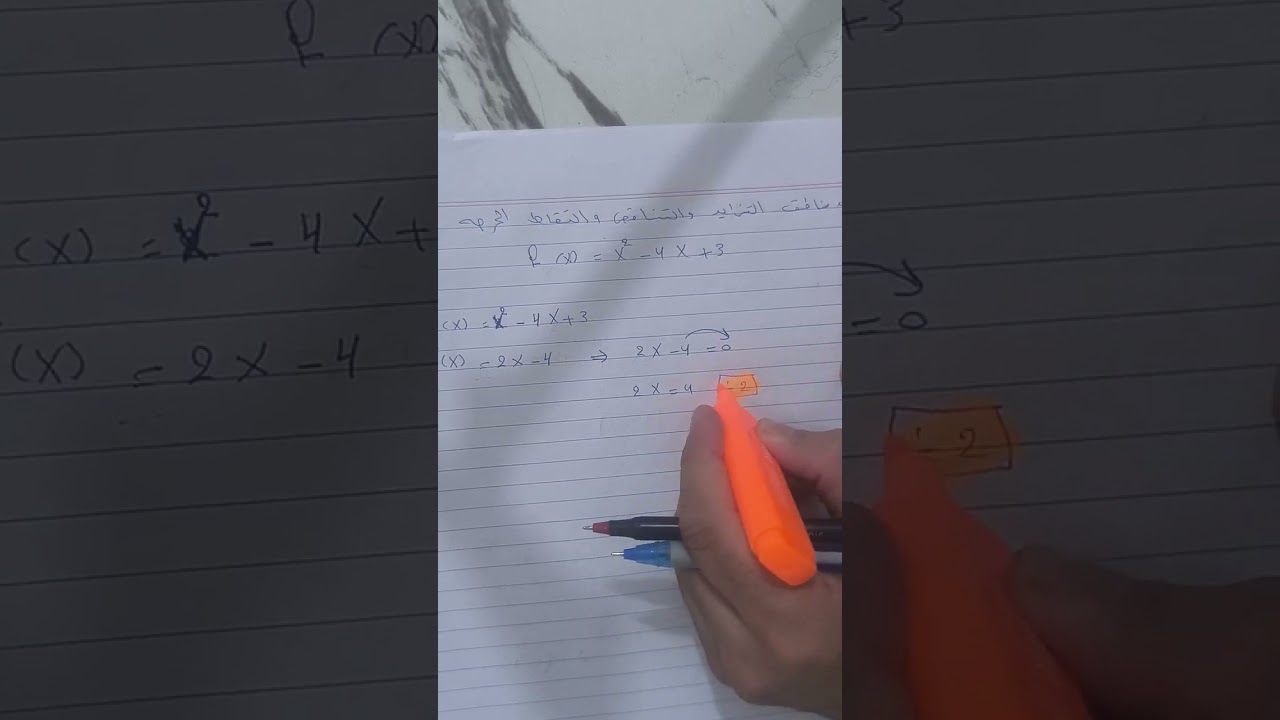 التزايد والتناقص والنقاط الحرجه
f (x) = x² - 4x + 3
(x) = x² - 4x + 3
(x) = 2x - 4 ⇒ 2x - 4 = 0
2x = 4 ÷ 2